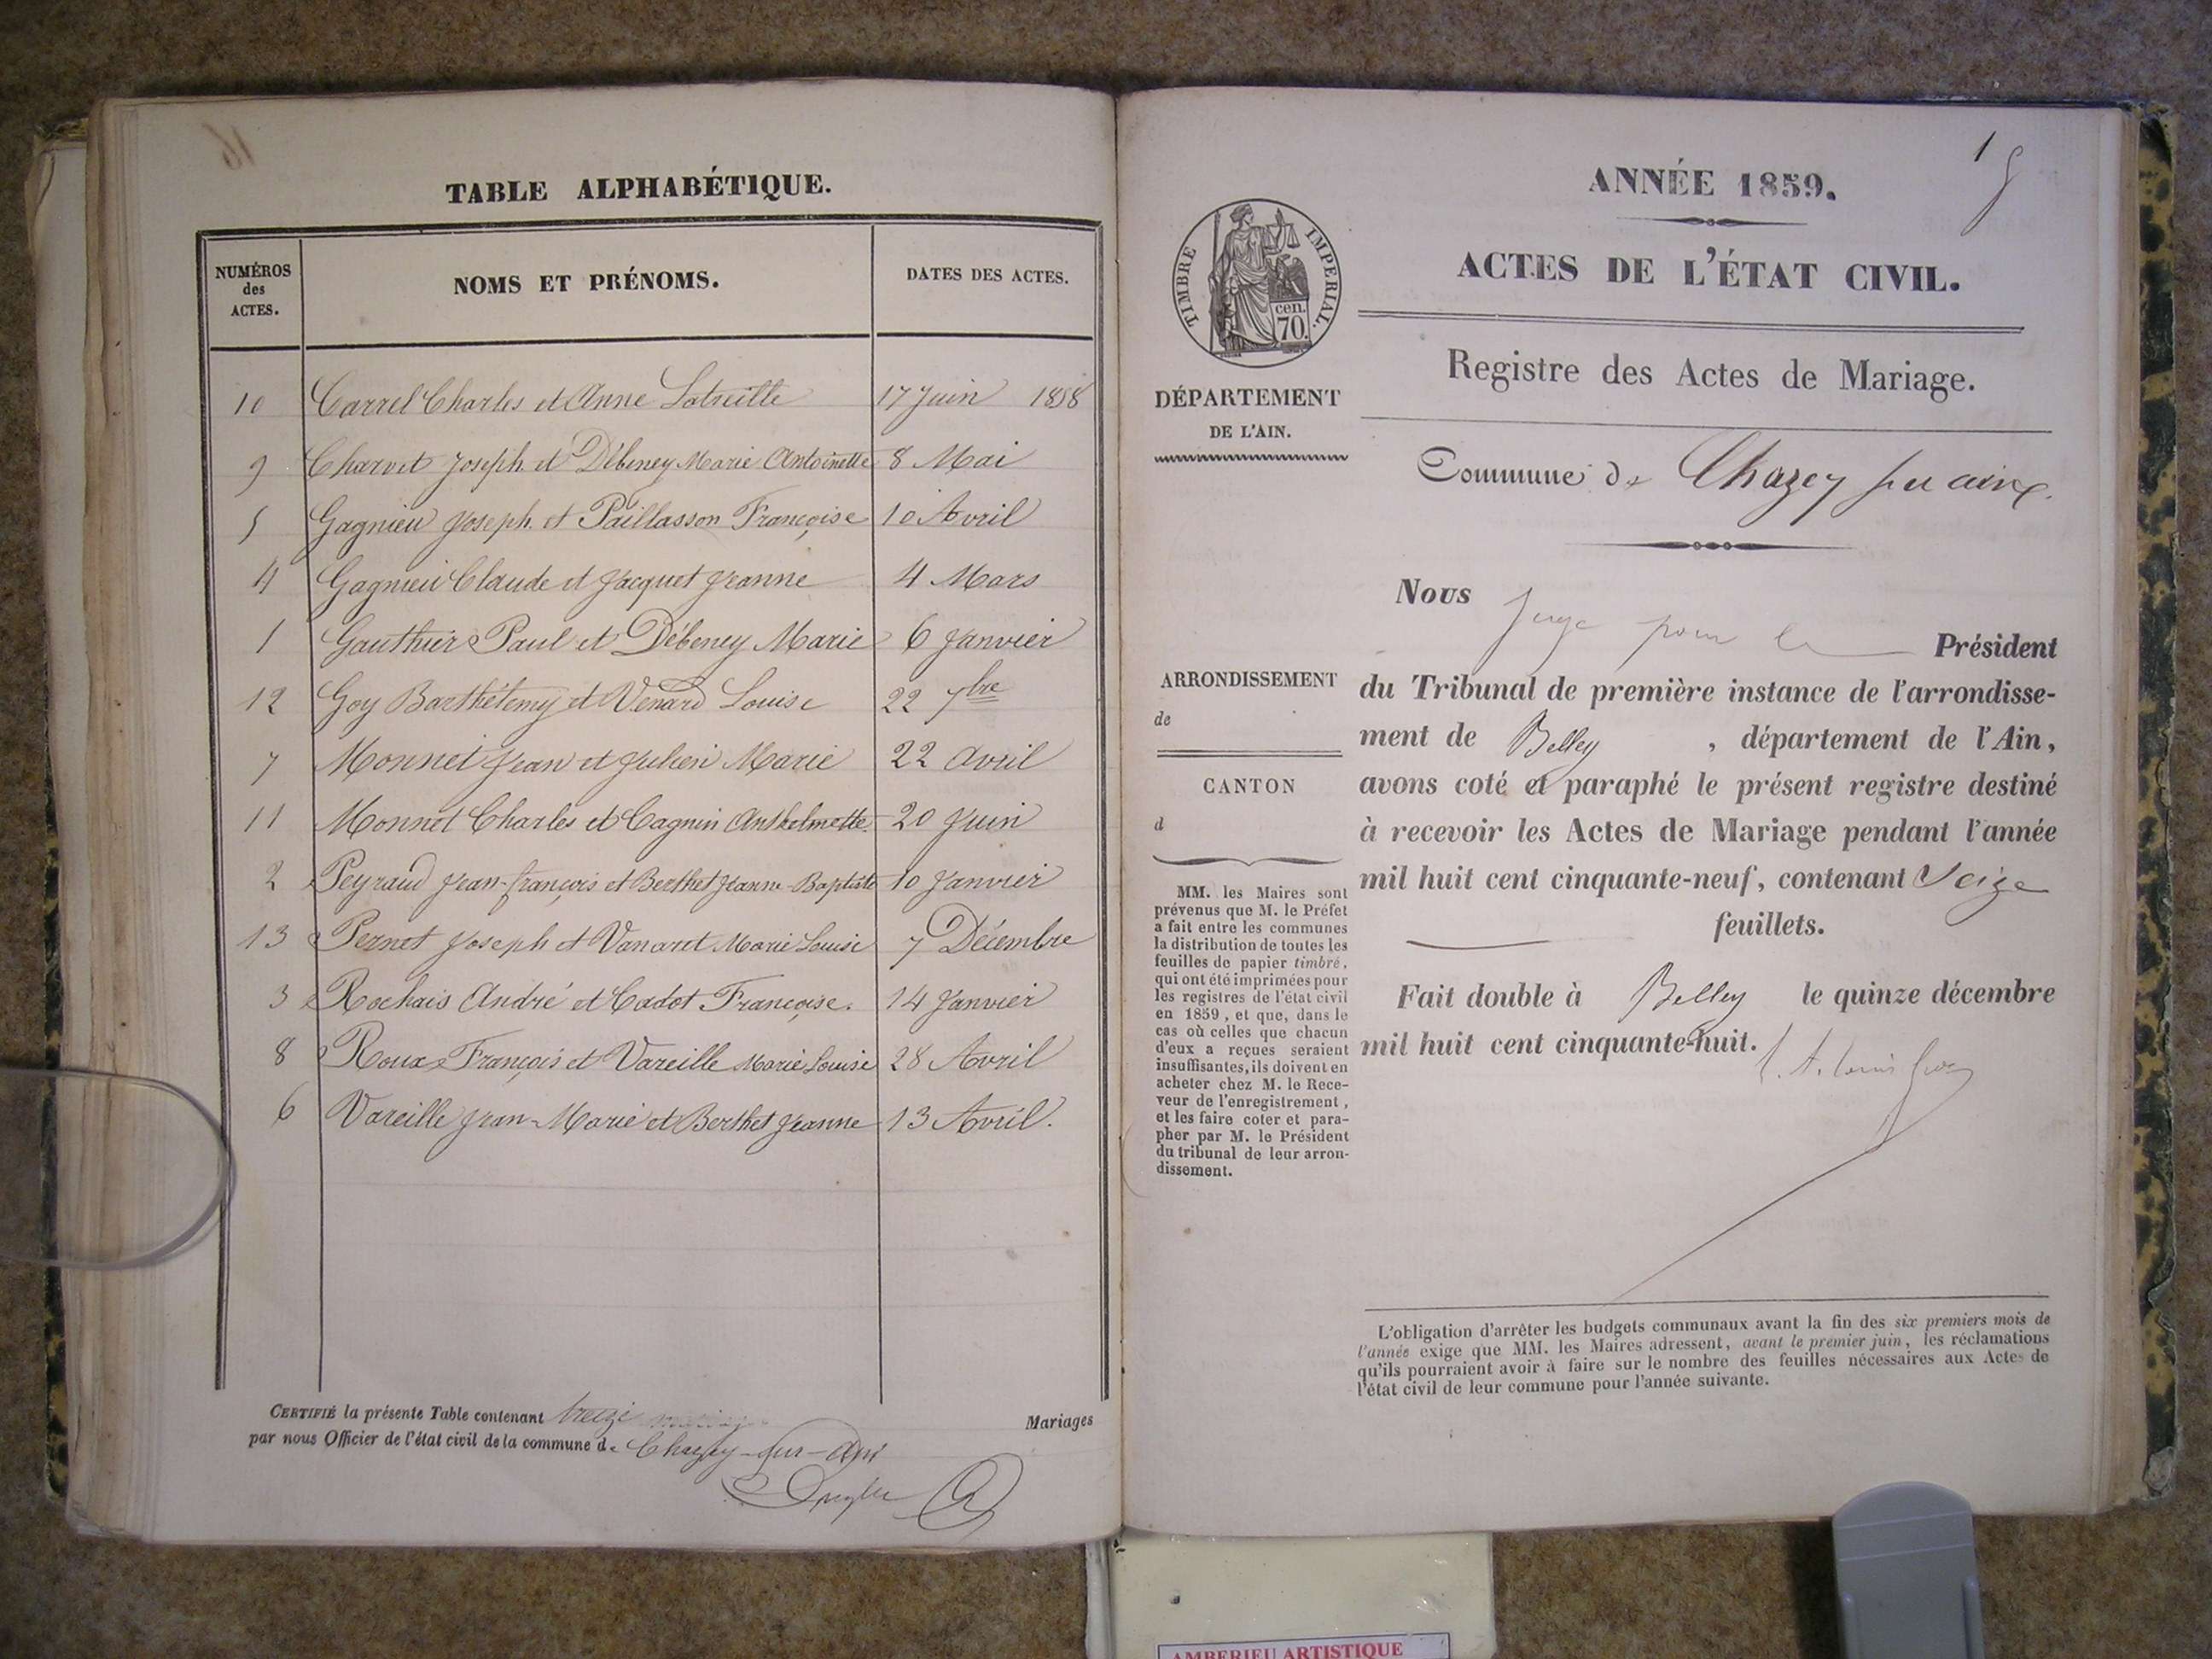 TABLE ALPHABÉTIQUE.
NUMÉROS
des
ACTES.
NOMS ET PRÉNOMS.
DATES DES ACTES.
10 Carrel Charles et Anne Latreille 17 Juin 1858
9 Charvet Joseph et Débeney Marie Antoinette 8 Mai
5 Gagnieu Joseph et Paillasson Françoise 10 Avril
4 Gagnieu Claude et Jacquet Jeanne 4 Mars
1 Gauthier Paul et Débeney Marie 6 Janvier
12 Goy Barthélemy et Venard Louise 22 7bre
7 Monnet Jean et Julien Marie 22 Avril
11 Monnet Charles et Cagnin Anthelmette 20 Juin
2 Peyraud Jean-françois et Berthet Jeanne-Baptiste 10 Janvier
13 Pernet Joseph et Vanaret Marie Louise 7 Décembre
3 Rochais André et Cadot Françoise. 14 Janvier
8 Roux François et Vareille Marie Louise 28 Avril
6 Vareille Jean-Marie et Berthet Jeanne 13 Avril.
CERTIFIÉ la présente Table contenant treize Mariages
par nous Officier de l'état civil de la commune de Chazey-sur-Ain
1
ANNÉE 1859.
TIMBRE IMPERIAL.
cen.
70.
ACTES DE L'ÉTAT CIVIL.
Registre des Actes de Mariage.
DÉPARTEMENT
DE L'AIN.
Commune de Chazey sur ain
ARRONDISSEMENT
de
CANTON
d
MM. les Maires sont
prévenus que M. le Préfet
a fait entre les communes
la distribution de toutes les
feuilles de papier timbré,
qui ont été imprimées pour
les registres de l'état civil
en 1859, et que, dans le
cas où celles que chacun
d'eux a reçues seraient
insuffisantes, ils doivent en
acheter chez M. le Rece-
veur de l'enregistrement,
et les faire coter et para-
pher par M. le Président
du tribunal de leur arron-
dissement.
Nous Juge pour le Président
du Tribunal de première instance de l'arrondisse-
ment de Belley, département de l'Ain,
avons coté et paraphé le présent registre destiné
à recevoir les Actes de Mariage pendant l'année
mil huit cent cinquante-neuf, contenant Seize
feuillets.
Fait double à Belley le quinze décembre
mil huit cent cinquante-huit.
L'obligation d'arrêter les budgets communaux avant la fin des six premiers mois de
l'année exige que MM. les Maires adressent, avant le premier juin, les réclamations
qu'ils pourraient avoir à faire sur le nombre des feuilles nécessaires aux Actes de
l'état civil de leur commune pour l'année suivante.
AMBERIEU ARTISTIQUE